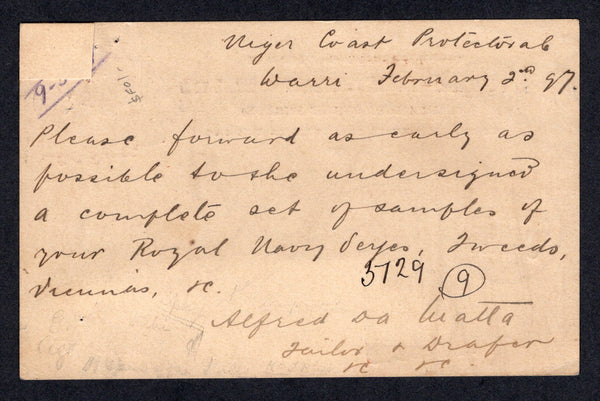 Niger Coast Protectorate
Warri February 2nd 97.
9-
Please forward as early as
possible to the undersigned
a complete set of samples of
your Royal Navy Serges, Tweeds,
Viennas, &c.
5729 9
Alfred da Matta
Tailor & Draper
&c &c.